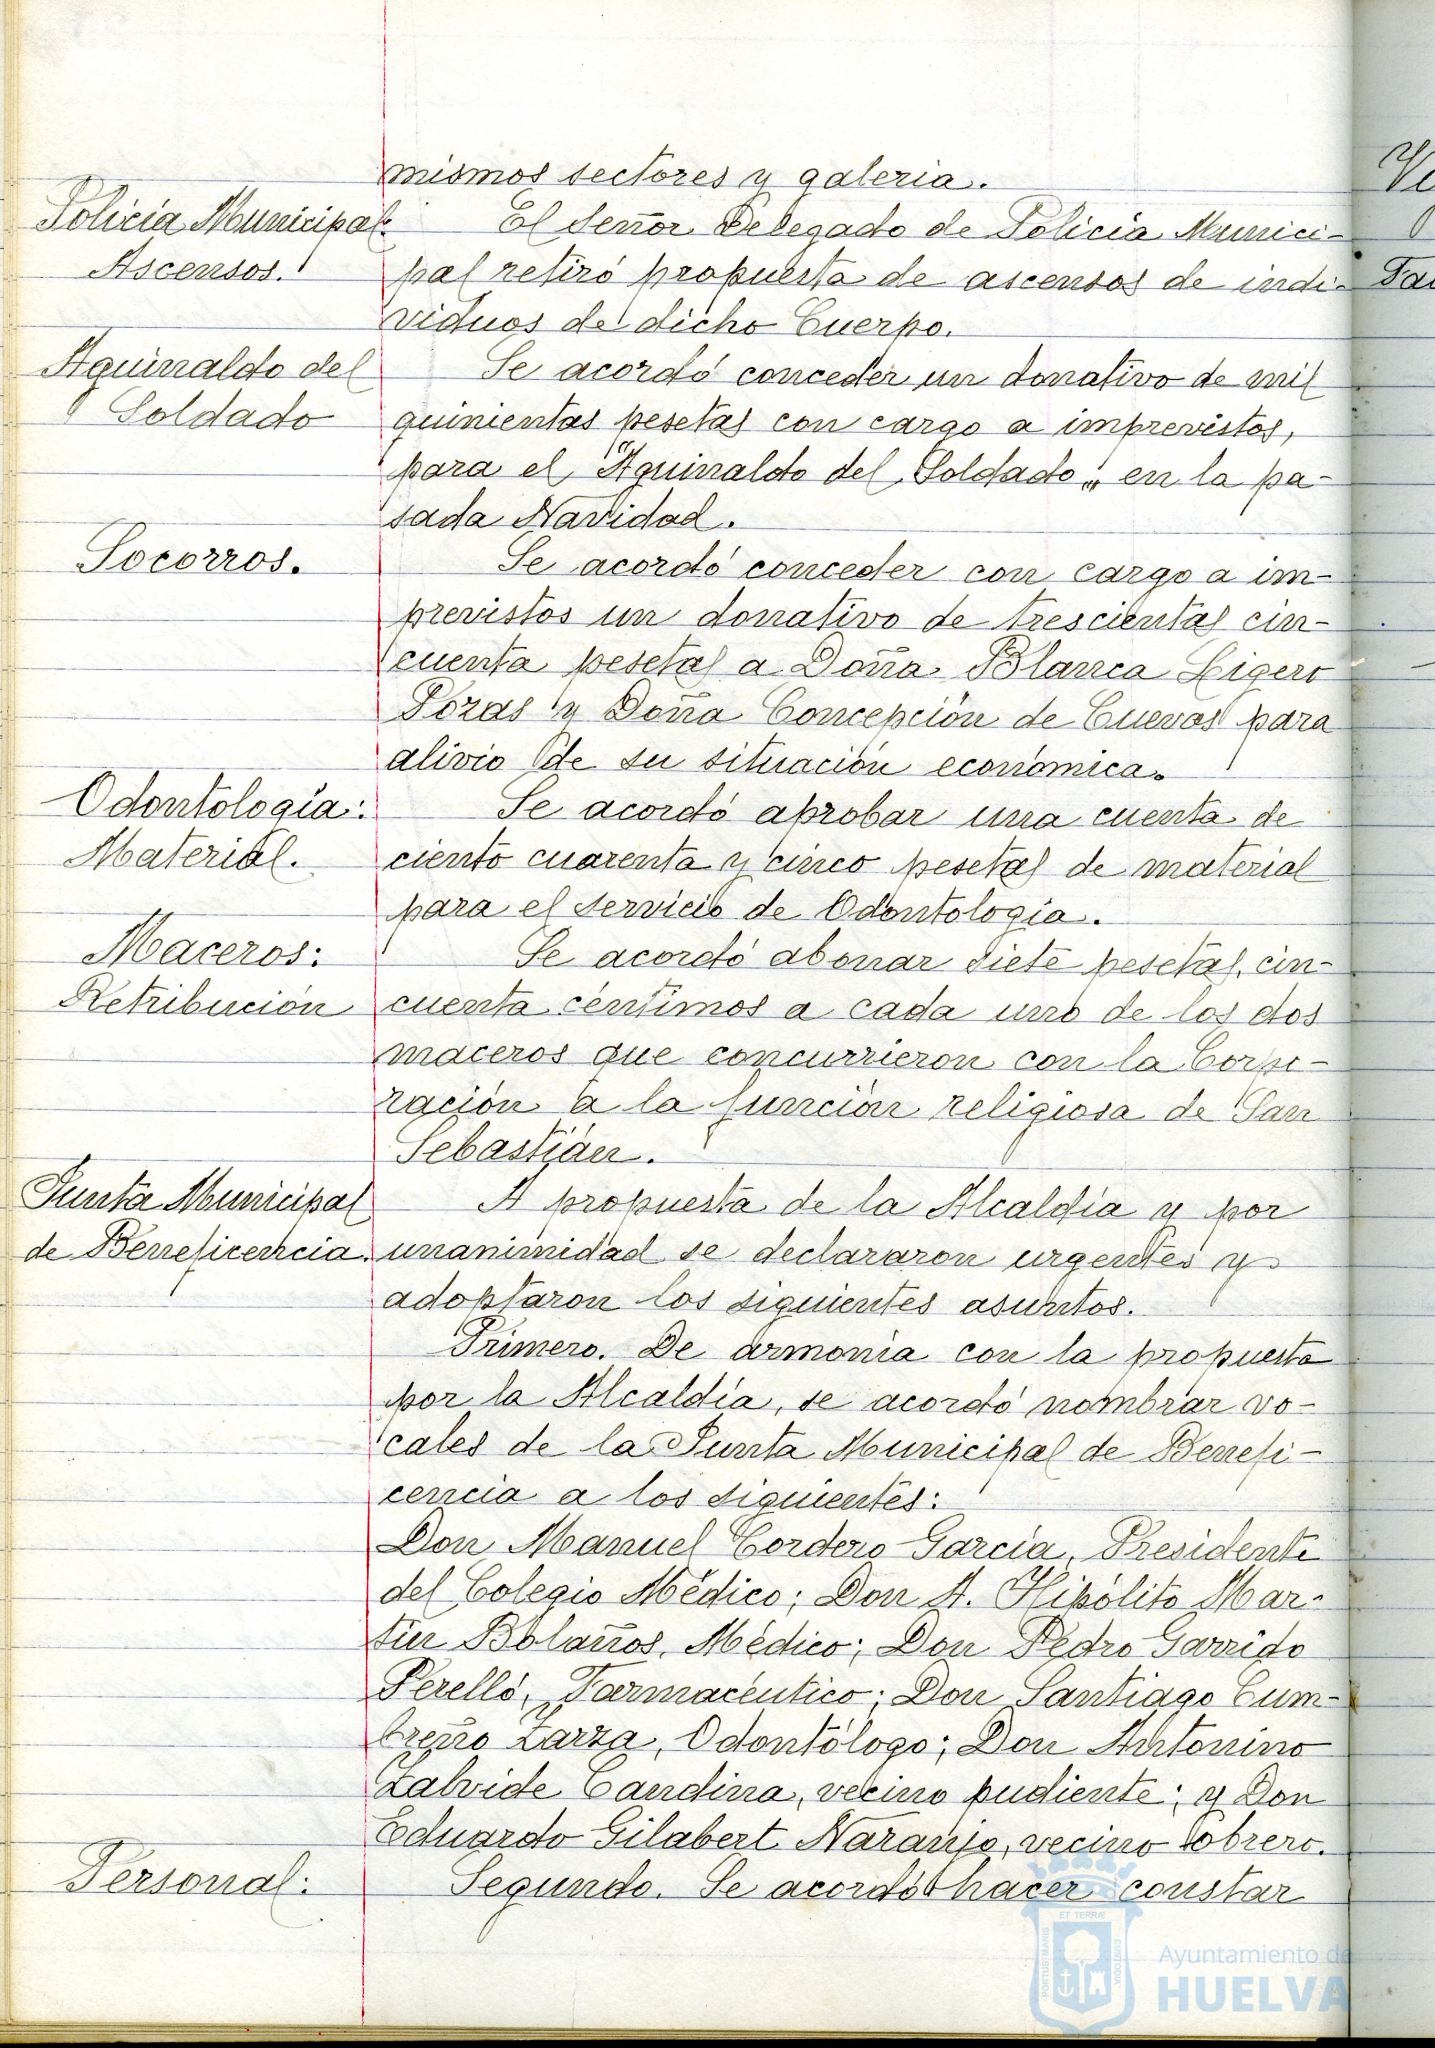 mismos sectores y galeria.
Policía Municipal:
Ascensos.
El Señor Delegado de Policía Munici-
pal retiró propuesta de ascensos de indi-
viduos de dicho Cuerpo.
Aguinaldo del
Soldado
Se acordó conceder un donativo de mil
quinientas pesetas con cargo a imprevistos,
para el "Aguinaldo del Soldado" en la pa-
sada Navidad.
Socorros.
Se acordó conceder con cargo a im-
previstos un donativo de trescientas cin-
cuenta pesetas a Doña Blanca Ligero
Pozas y Doña Concepción de Cuevas para
alivio de su situación económica.
Odontología:
Material.
Se acordó aprobar una cuenta de
ciento cuarenta y cinco pesetas de material
para el servicio de Odontología.
Maceros:
Retribución
Se acordó abonar siete pesetas, cin-
cuenta céntimos a cada uno de los dos
maceros que concurrieron con la Corpo-
ración a la función religiosa de San
Sebastián.
Junta Municipal
de Beneficencia.
A propuesta de la Alcaldía y por
unanimidad se declararon urgentes y
adoptaron los siguientes asuntos.
Primero. De armonía con la propuesta
por la Alcaldía, se acordó nombrar vo-
cales de la Junta Municipal de Benefi-
cencia a los siguientes:
Don Manuel Cordero García, Presidente
del Colegio Médico; Don A. Hipólito Mar-
tín Bolaños, Médico; Don Pedro Garrido
Perelló, Farmacéutico; Don Santiago Cum-
breño Zarza, Odontólogo; Don Antonino
Zalvide Candina, vecino pudiente; y Don
Eduardo Gilabert Naranjo, vecino obrero.
Personal:
Segundo. Se acordó hacer constar
PORTUS MARIS
ET TERRÆ
CUSTODIA
Ayuntamiento de
HUELVA